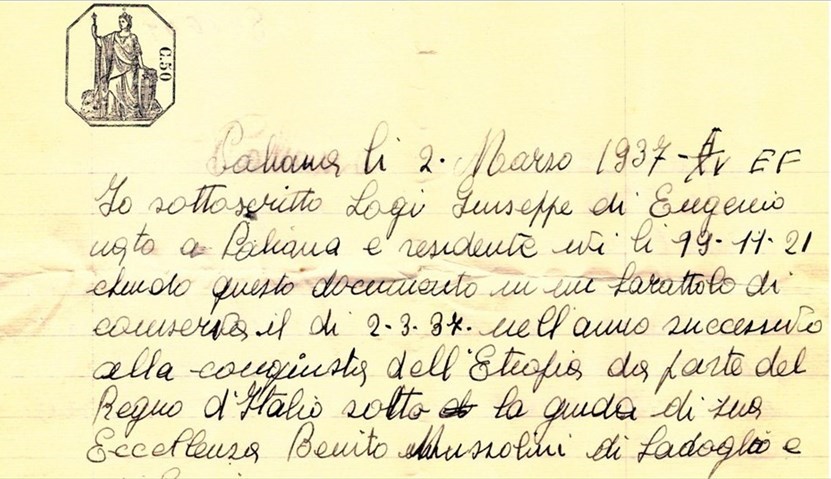 C.50
li 2. Marzo 1937 - XV EF
Io sottoscritto Logi Giuseppe di Eugenio
nato a e residente ivi li 19-11-21
chiudo questo documento in un barattolo di
conserva il dì 2-3-37. nell'anno successivo
alla conquista dell'Etiopia da parte del
Regno d'Italia sotto la guida di sua
Eccellenza Benito Mussolini di Badoglio e